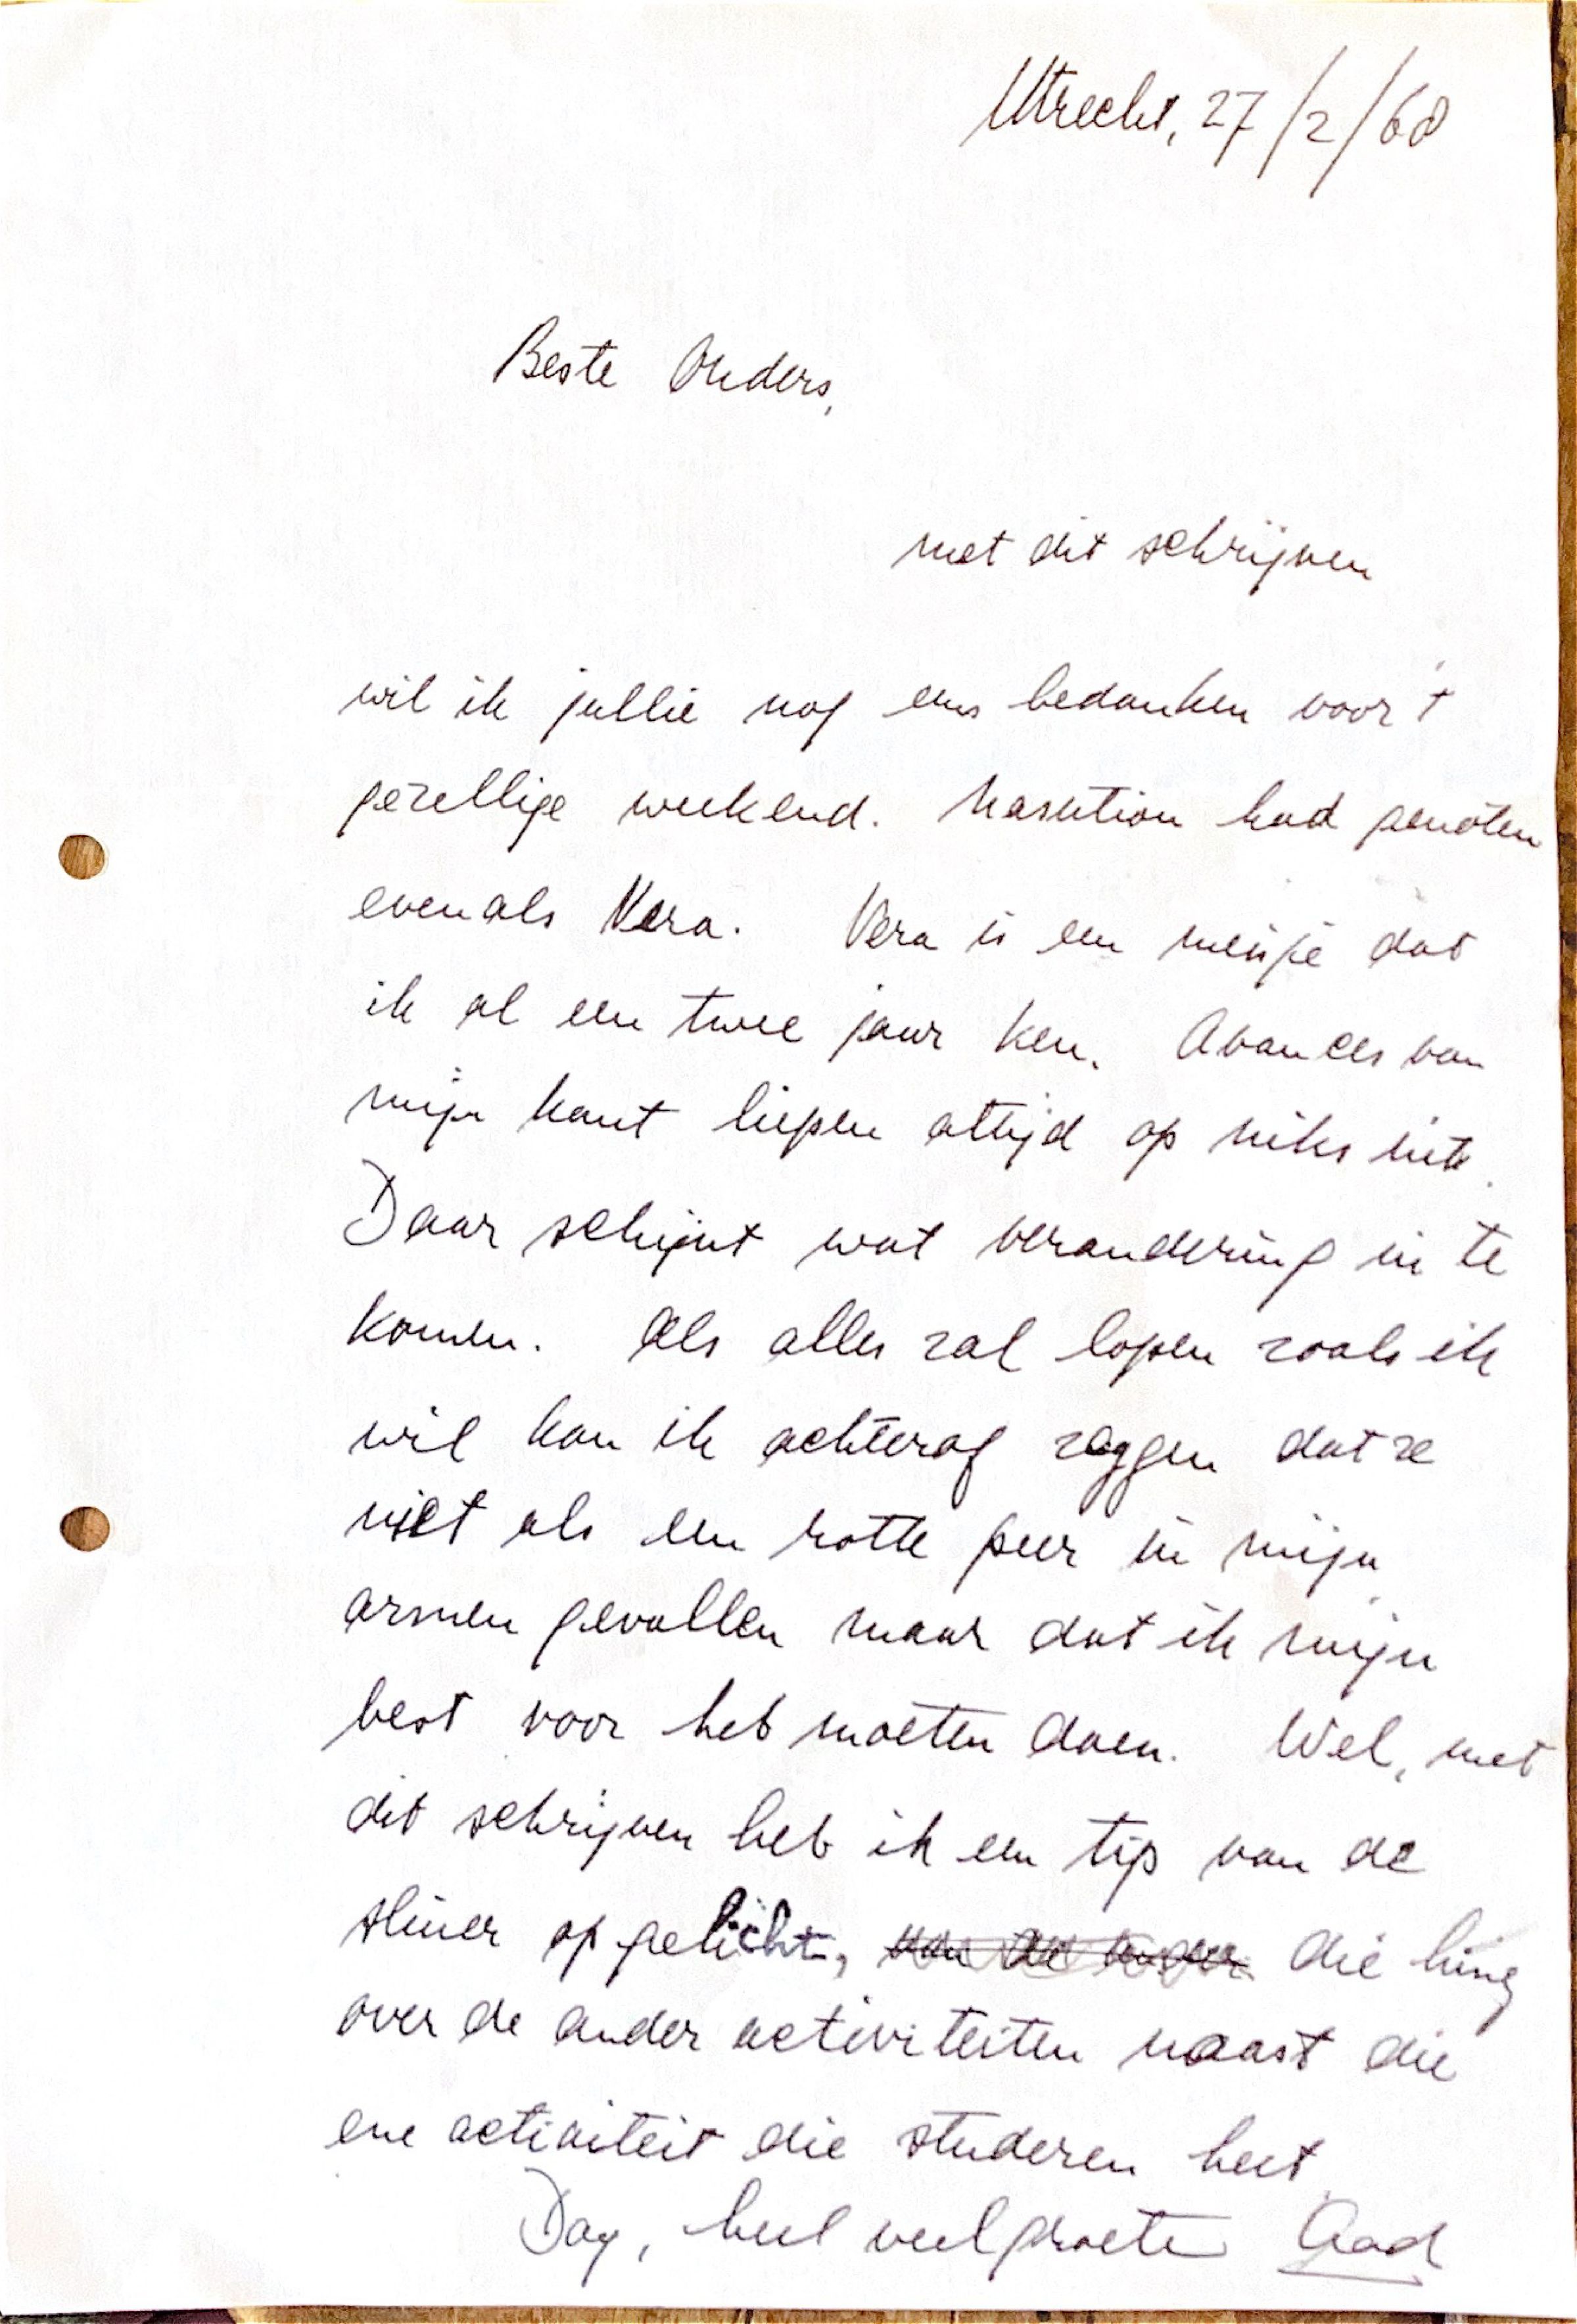 Utrecht, 27/2/68
Beste Ouders,
met dit schrijven
wil ik jullie nog eens bedanken voor 't
gezellige weekend. Nasution had genoten
evenals Vera. Vera is een meisje dat
ik al een twee jaar ken. Avances van
mijn kant liepen altijd op niks uit.
Daar schijnt wat verandering in te
komen. Als alles zal lopen zoals ik
wil kan ik achteraf zeggen dat ze
niet als een rotte peer in mijn
armen gevallen maar dat ik mijn
best voor heb moeten doen. Wel, met
dit schrijven heb ik een tip van de
sluier opgelicht, die hing
over de ander activiteiten naast die
ene activiteit die studeren heet.
Dag, heel veel groeten Aad